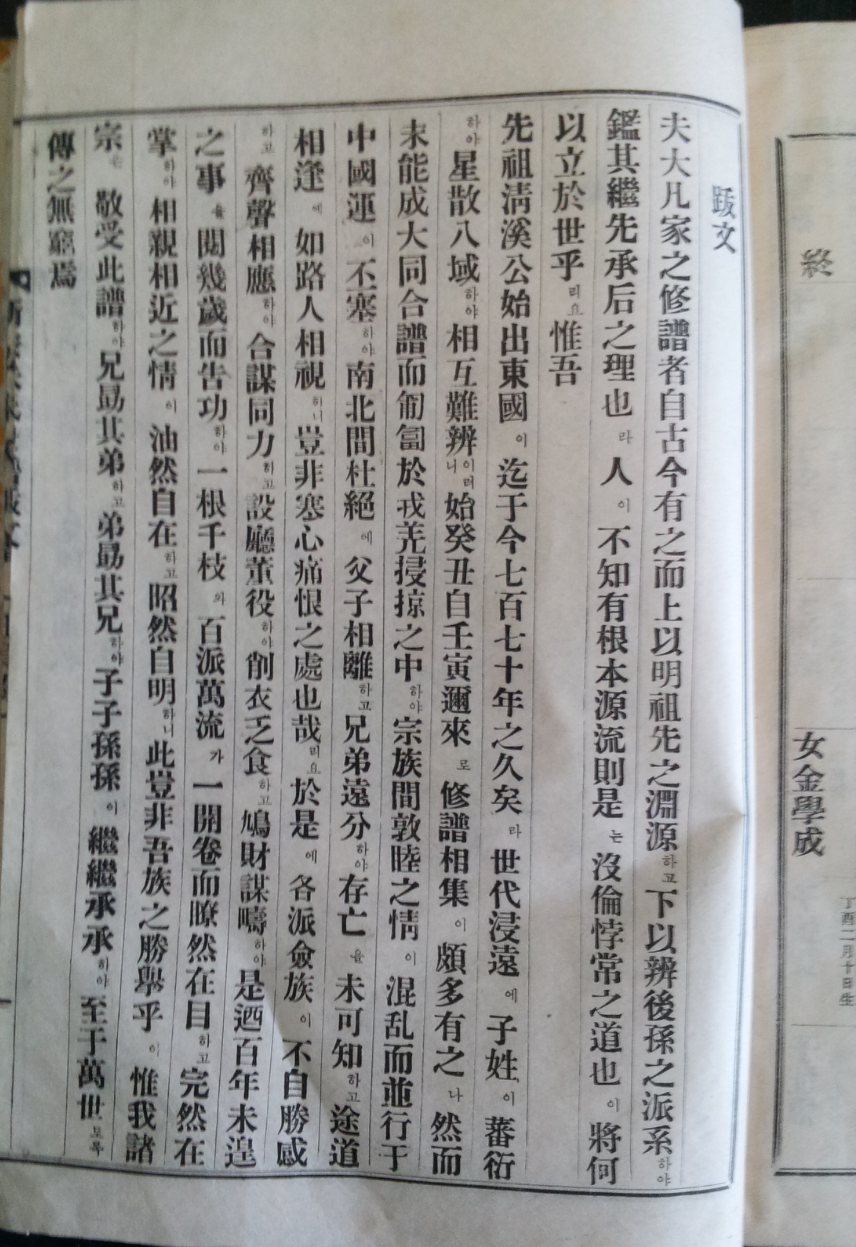 終
女金學成
丁酉二月十日生
跋文
夫大凡家之修譜者自古今有之而上以明祖先之淵源하고下以辨後孫之派系하야
鑑其繼先承后之理也라人이不知有根本源流則是는沒倫悖常之道也이將何
以立於世乎리요惟吾
先祖淸溪公始出東國이迄于今七百七十年之久矣라世代浸遠에子姓이蕃衍
하야星散八域하야相互難辨이러니始癸丑自壬寅邇來로修譜相集이頗多有之나然而
未能成大同合譜而匍匐於戎羌侵掠之中하야宗族間敦睦之情이混乱而並行于
中國運이不塞하야南北間杜絕에父子相離하고兄弟遠分하야存亡을未可知하고途道
相逢에如路人相視하니豈非塞心痛恨之處也哉리요於是에各派僉族이不自勝感
하고齊聲相應하야合謀同力하고設廳董役하야削衣乏食하고鳩財謀疇하야是迺百年未遑
之事을閱幾歲而告功하야一根千枝의百派萬流가一開卷而瞭然在目하고完然在
掌하야相親相近之情이油然自在하고昭然自明하니此豈非吾族之勝擧乎이惟我諸
宗은敬受此譜하야兄勗其弟하고弟勗其兄하야子子孫孫이繼繼承承하야至于萬世토록
傳之無窮焉